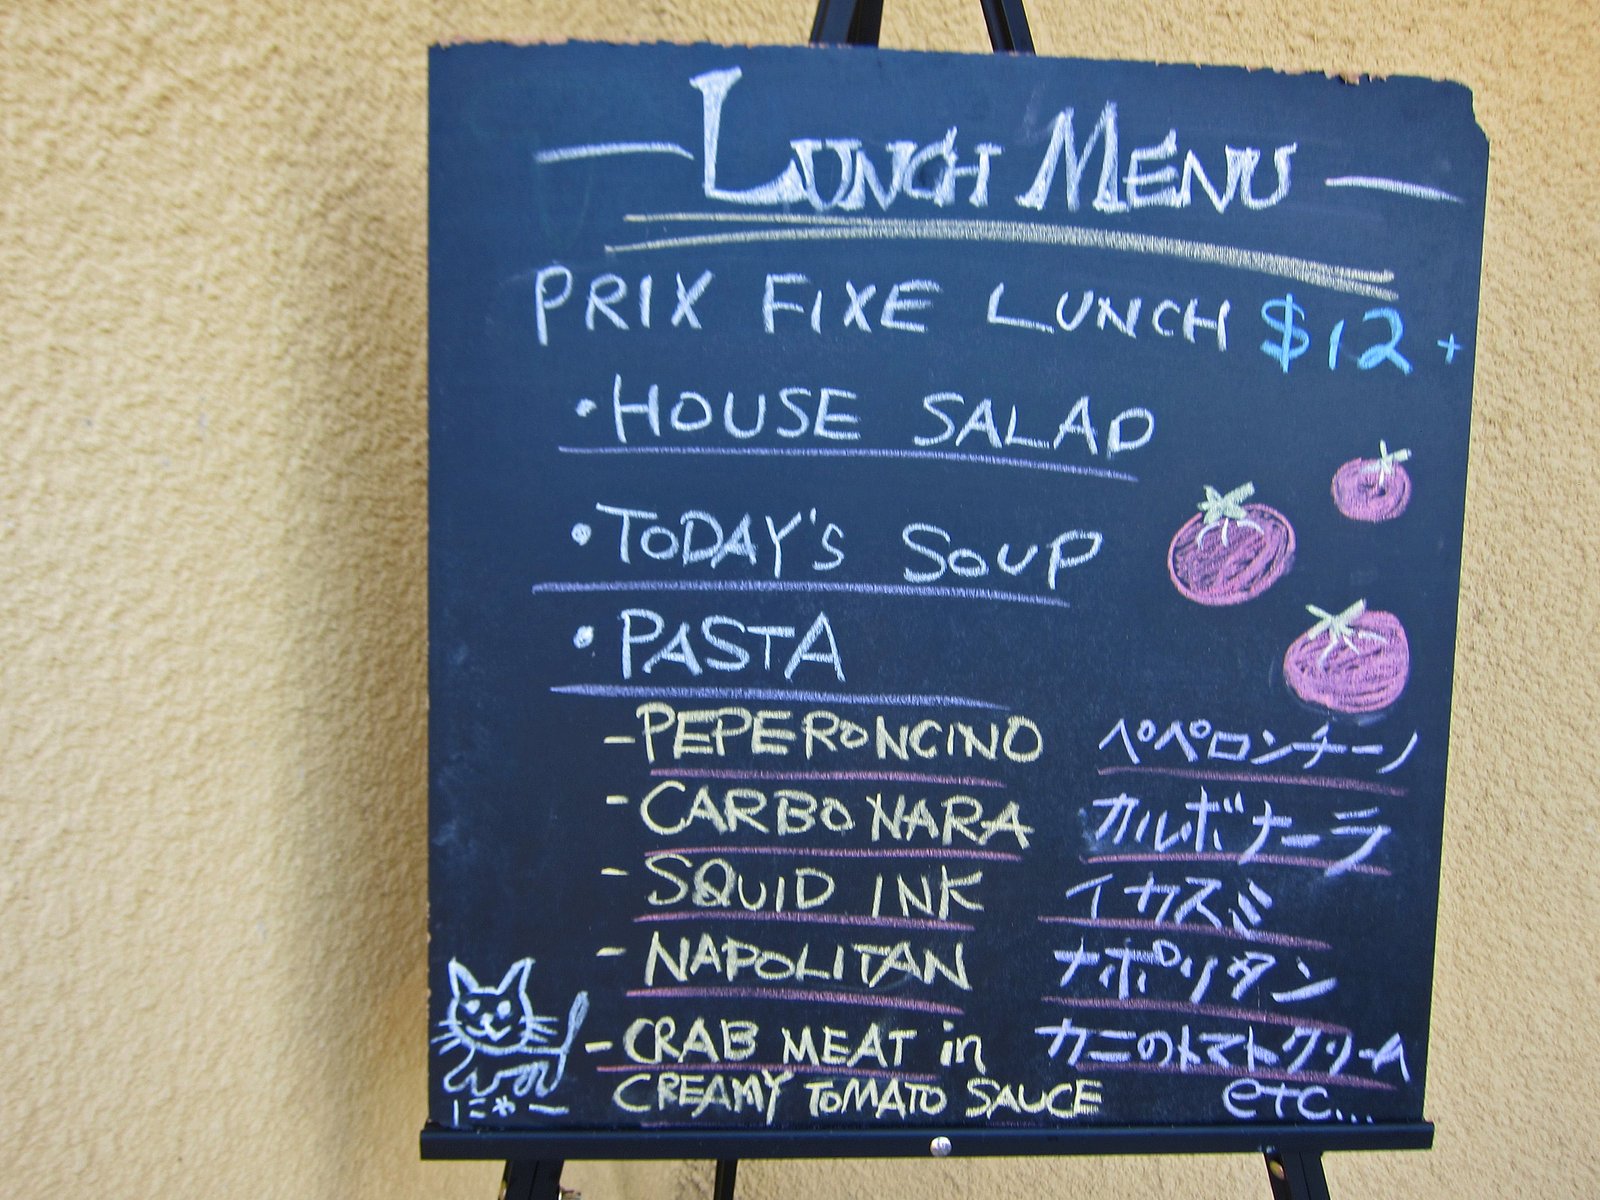 — LUNCH MENU —
PRIX FIXE LUNCH $12+
• HOUSE SALAD
• TODAY'S SOUP
• PASTA
- PEPERONCINO ペペロンチーノ
- CARBONARA カルボナーラ
- SQUID INK イカスミ
- NAPOLITAN ナポリタン
- CRAB MEAT in カニのトマトクリーム
CREAMY TOMATO SAUCE etc...
にゃー